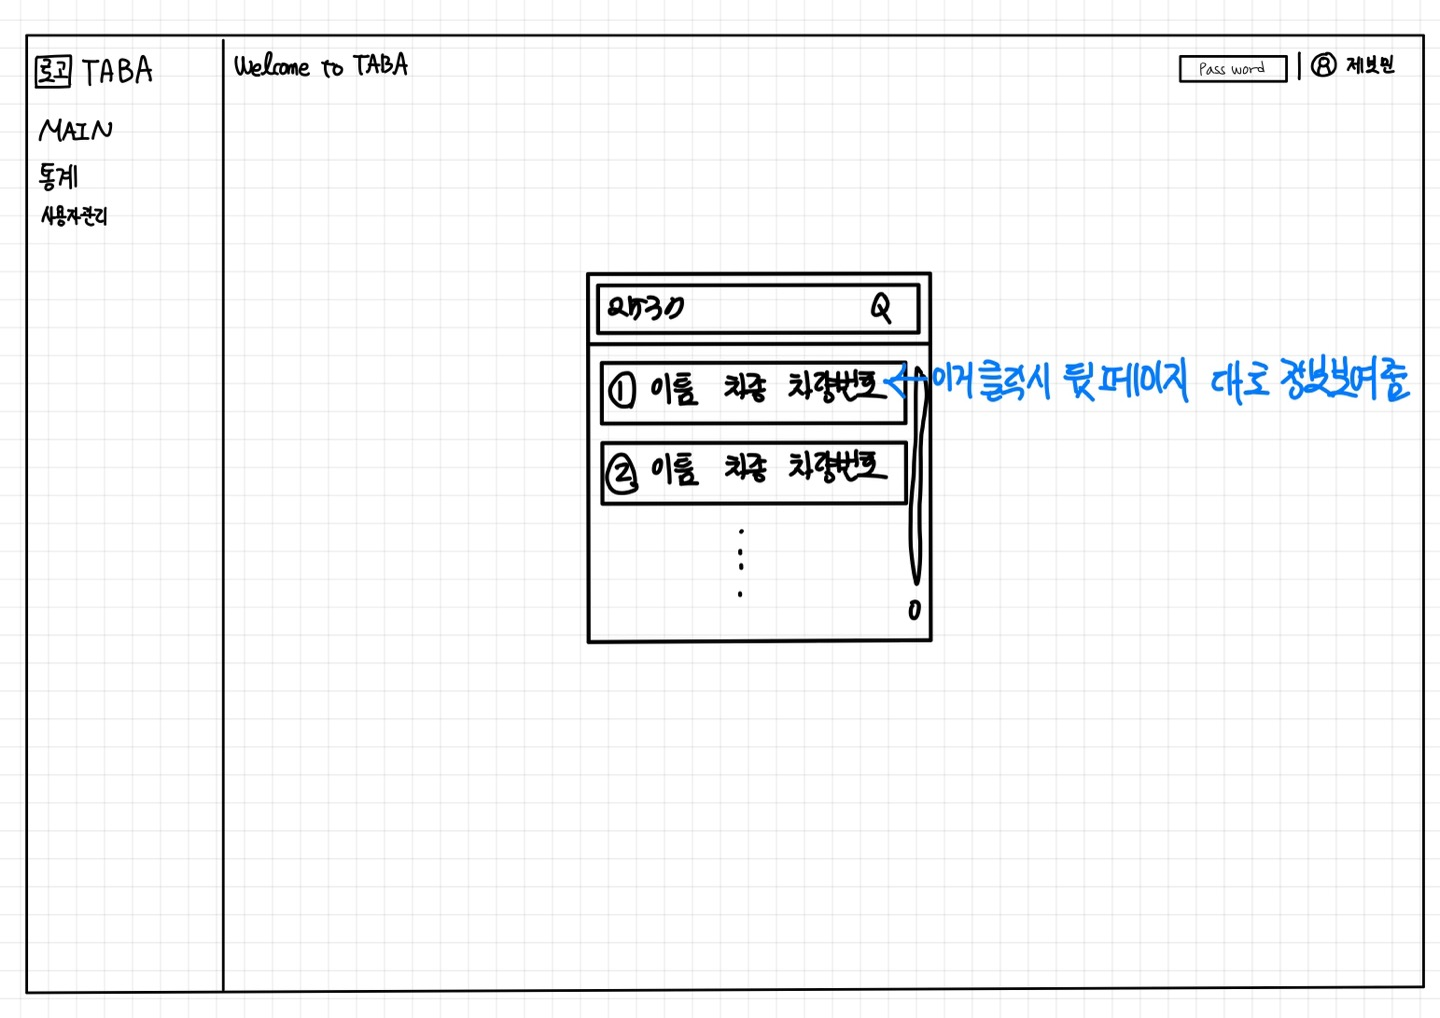 로고 TABA
MAIN
통계
사용자관리
Welcome to TABA
Pass word
제보민
2530
① 이름 차종 차량번호
← 이거 클릭시 뒷 페이지 대로 정보보여줌
② 이름 차종 차량번호